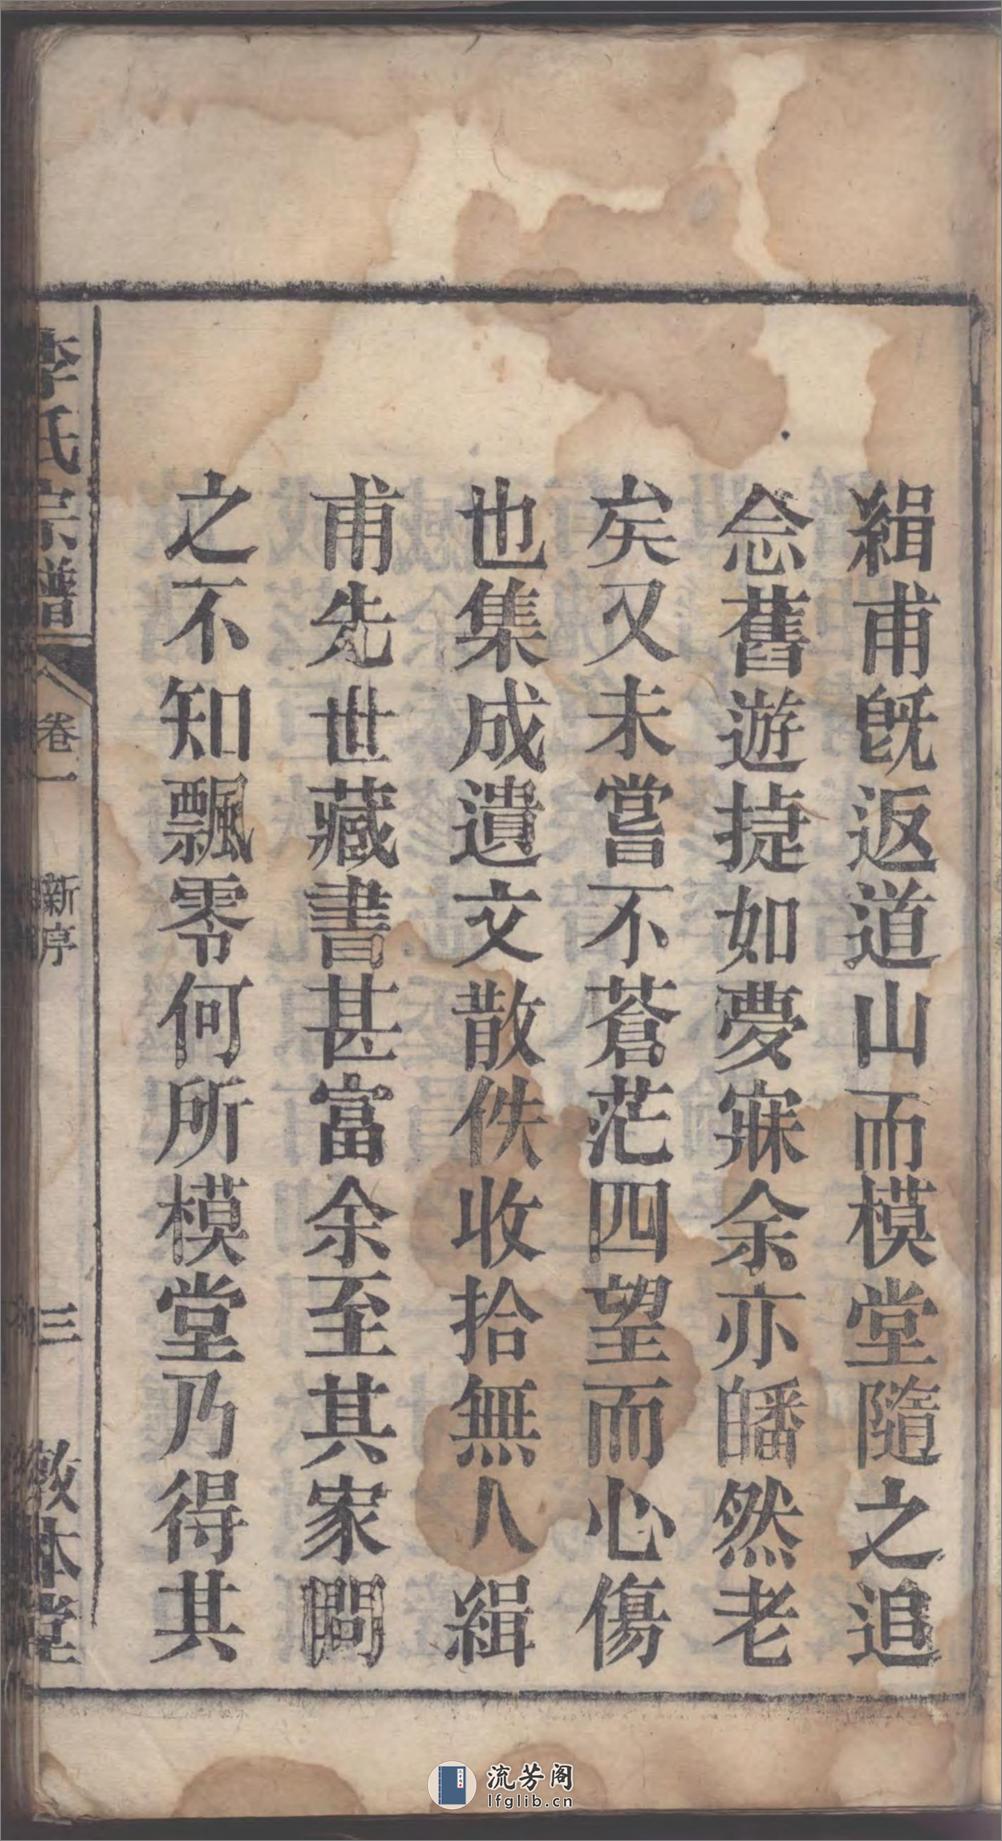 緝甫旣返道山而模堂隨之追
念舊遊捷如夢寐余亦皤然老
矣又未嘗不蒼茫四望而心傷
也集成遺文散佚收拾無人緝
甫先世藏書甚富余至其家問
之不知飄零何所模堂乃得其
李氏宗譜
卷一
新序
三
敦本堂
流芳阁
lfglib.cn